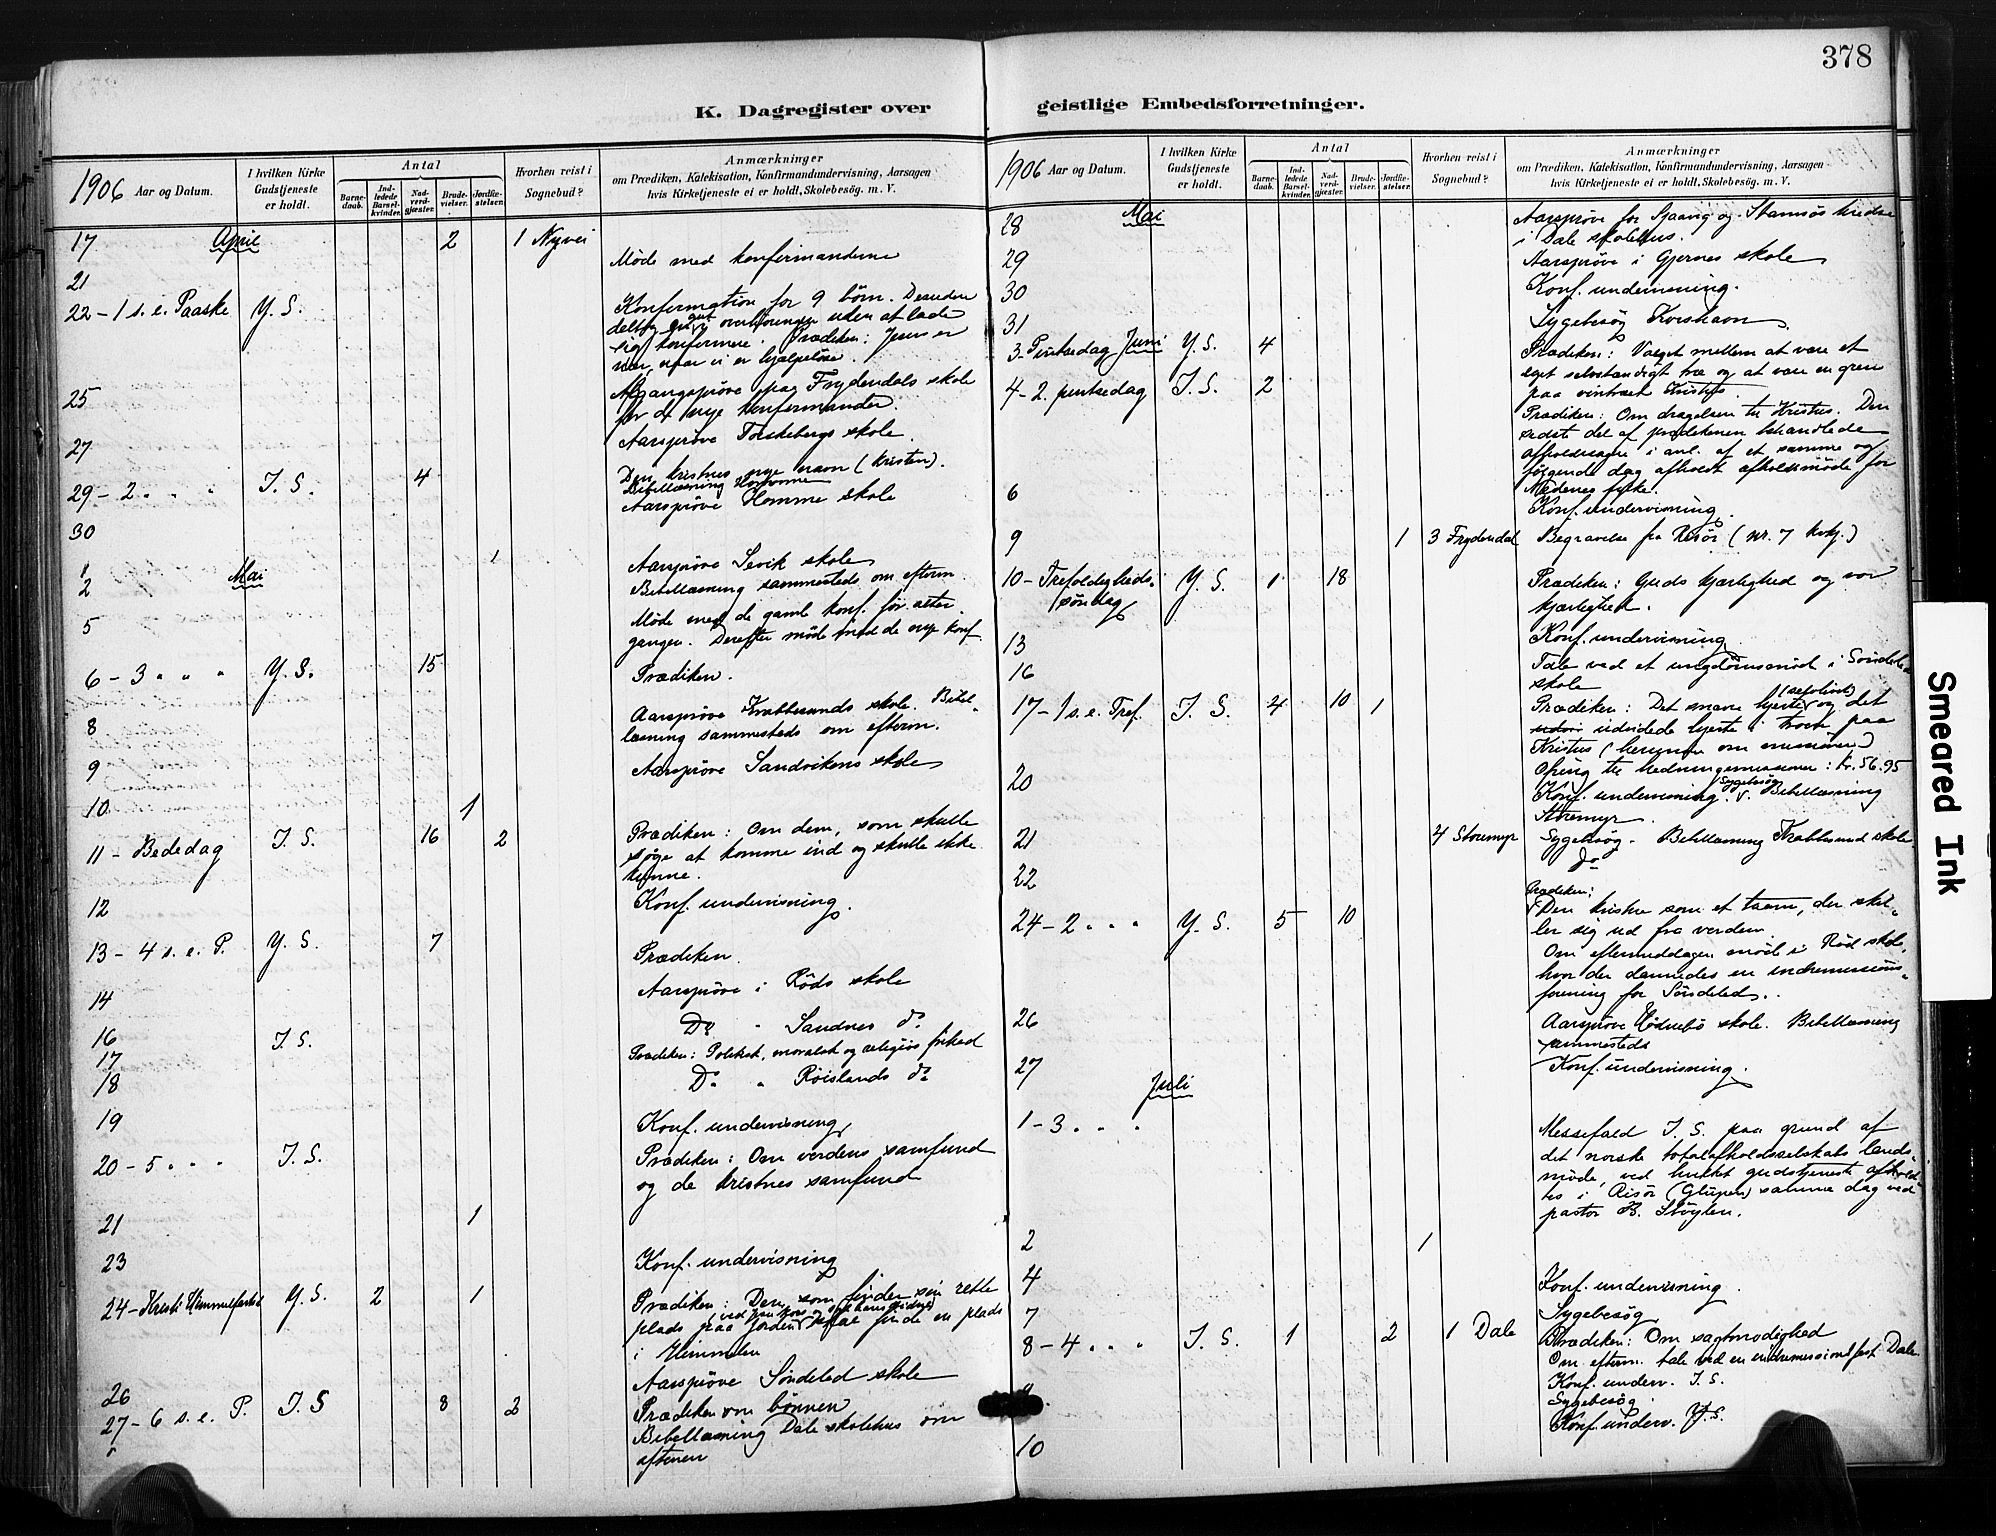 378
K. Dagregister over
1906 Aar og Datum.
I hvilken Kirke Gudstjeneste er holdt.
Antal
Barne-daab.
Ind-ledede Barsel-kvinder.
Nad-verd-gjæster.
Brude-vielser.
Jordfæ-stelser.
Hvorhen reist i Sognebud?
Anmærkninger
om Prædiken, Katekisation, Konfirmandundervisning, Aarsagen
hvis Kirketjeneste ei er holdt, Skolebesøg. m. V.
17 April 2 1 Nyvei
21 Møde med konfirmanderne
22 - 1 s. e. Paaske Y. S. Konfirmation for 9 børn. Desuden
deltog en gut i overhøringen uden at lade
sig konfirmere. Prædiken: Jesus er
nær, naar vi er hjælpeløse.
25 Afgangsprøve paa Frydendals skole
for de nye konfirmander.
27 Aarsprøve Torskebergs skole.
29 - 2 " " I. S. 4 Den kristnes nye navn (Kristen).
Bibellæsning
30 Aarsprøve Homme skole
1 Mai 1 Aarsprøve Sevik skole
2 Bibellæsning sammesteds om efterm.
5 Møde med de gamle konf. før alter
gangen. Derefter møde med de nye konf.
6 - 3 " " " Y. S. 15 Prædiken.
8 Aarsprøve Krabbesunds skole. Bibel-
læsning sammesteds om efterm.
9 Aarsprøve Sandvikens skole
10 1
11 - Bededag I. S. 16 2 Prædiken: Om dem, som skulle
søge at komme ind og skulle ikke
kunne.
12 Konf. undervisning.
13 - 4 s. e. P. Y. S. 7 Prædiken.
14 Aarsprøve i Røds skole
16 Do " Sandnes do
17 I. S. Prædiken: Politisk, moralsk og religiøs frihed
18 Do " Røislands do
19 Konf. undervisning
20 - 5 " " " I. S. Prædiken: Om verdens samfund
og de kristnes samfund
21 1
23 Konf. undervisning
24 - Kristi Himmelfartsd Y. S. 2 1 Prædiken: Den, som finder sin rette
plads paa jorden skal finde en plads
i Himmelen
26 Aarsprøve Søndeled skole
27 - 6 s. e. P. I. S 8 2 Prædiken om bønnen
Bibellæsning Dale skolehus om
aftenen
geistlige Embedsforretninger.
1906 Aar og Datum.
I hvilken Kirke Gudstjeneste er holdt.
Antal
Barne-daab.
Ind-ledede Barsel-kvinder.
Nad-verd-gjæster.
Brude-vielser.
Jordfæ-stelser.
Hvorhen reist i Sognebud?
Anmærkninger
om Prædiken, Katekisation, Konfirmandundervisning, Aarsagen
hvis Kirketjeneste ei er holdt, Skolebesøg. m. V.
28 Mai Aarsprøve for og kredse
i Dale skolehus.
29 Aarsprøve i Gjernes skole
30 Konf. undervisning.
31 Sygebesøg Korshavn
3. Pintsedag Juni Y. S. 4 Prædiken: Valget mellem at være et
eget selvstændigt træ og at være en gren
paa vintræet Kristus.
4 - 2. pintsedag I. S. 2 Prædiken: Om dragelsen til Kristus. Den
sidst del af prædikenen behandlede
afholdssagen i anl. af et samme og
følgende dag afholdt afholdsmøde for
Nedenes fylke.
6 Konf. undervisning
9 1 3 Frydendal Begravelse fra Risør (nr. 7 )
10 - Trefoldigheds-
søndag Y. S. 1 18 Prædiken: Guds kjærlighed og vor
kjærlighed.
13 Konf. undervisning
16 Tale ved et ungdomsmøde i Søndeled
skole
17 - 1 s. e. Tref. I. S. 4 10 1 Prædiken: Det snævre hjerte og det
udvidede hjerte i troen paa
Kristus (herunder om missionen)
Ofring til hedningemissionen: kr. 56.95
20 Konf. undervisning. Sygebesøg v. Bibellæsning
Storemyr.
21 4 Storemyr Sygebesøg - Bibellæsning Krabbesund skole
22 do
24 - 2 " " " Y. S. 5 10 Prædiken:
Den kristne som et taarn, der skil-
ler sig ud fra verden.
Om eftermiddagen møde i Rød skole,
hvor der dannedes en indremissions-
forening for Søndeled.
26 Aarsprøve Hødnebø skole. Bibellæsning
sammesteds
27 Konf. undervisning.
Juli
1 - 3 " " " Messefald I. S. paa grund af
det norske totalafholdsselskabs lands-
møde, ved hvilket gudstjeneste afhold-
tes i Risør (Glupen) samme dag ved
pastor B. Støylen.
2 1
4 Konf. undervisning
7 Sygebesøg
8 - 4 " " " I. S. 1 2 1 Dale Prædiken: Om sagtmodighed
Om efterm. tale ved en indremissionsfest Dale
Konf. underv. I. S.
Sygebesøg
10 Konf. underv. Y. S.
Smeared Ink